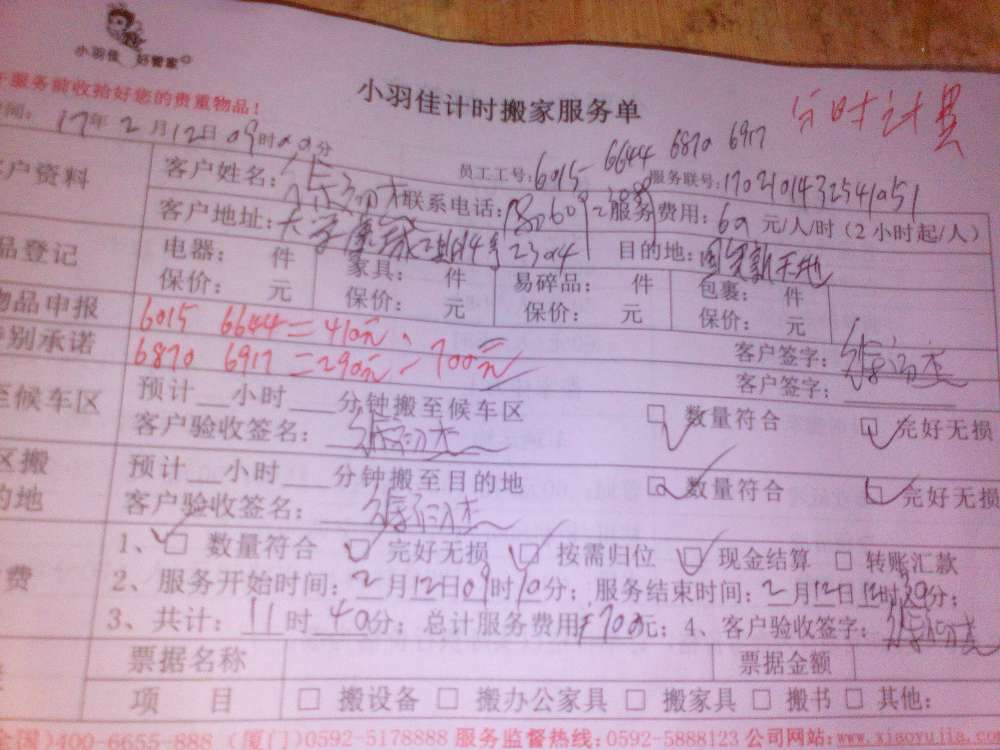 小羽佳 好管家
服务前收拾好您的贵重物品！
小羽佳计时搬家服务单
分时计算
时间：17年2月12日09时00分
员工工号：6015 6644 6870 6917
户资料 客户姓名： 联系电话： 服务联号：170210143254051
客户地址： 2期14号2304 服务费用：60元/人/时（2小时起/人）
目的地：国贸新天地
品登记 电器： 件 家具： 件 易碎品： 件 包裹： 件
保价： 元 保价： 元 保价： 元 保价： 元
物品申报 6015 6644=410元、 客户签字：
特别承诺 6870 6917=290元 700元 客户签字：
至候车区 预计__小时__分钟搬至候车区 □ 数量符合 □ 完好无损
客户验收签名：
区搬 预计__小时__分钟搬至目的地 □ 数量符合 □ 完好无损
的地 客户验收签名：
1、□ 数量符合 □ 完好无损 □ 按需归位 □ 现金结算 □ 转账汇款
费 2、服务开始时间：2月12日09时10分；服务结束时间：2月12日 时30分；
3、共计：11时40分；总计服务费用：700元；4、客户验收签字：
票据名称 票据金额
项 目 □ 搬设备 □ 搬办公家具 □ 搬家具 □ 搬书 □ 其他：
全国）400-6655-888（厦门）0592-5178888 服务监督热线：0592-5888123 公司网站：www.xiaoyujia.co